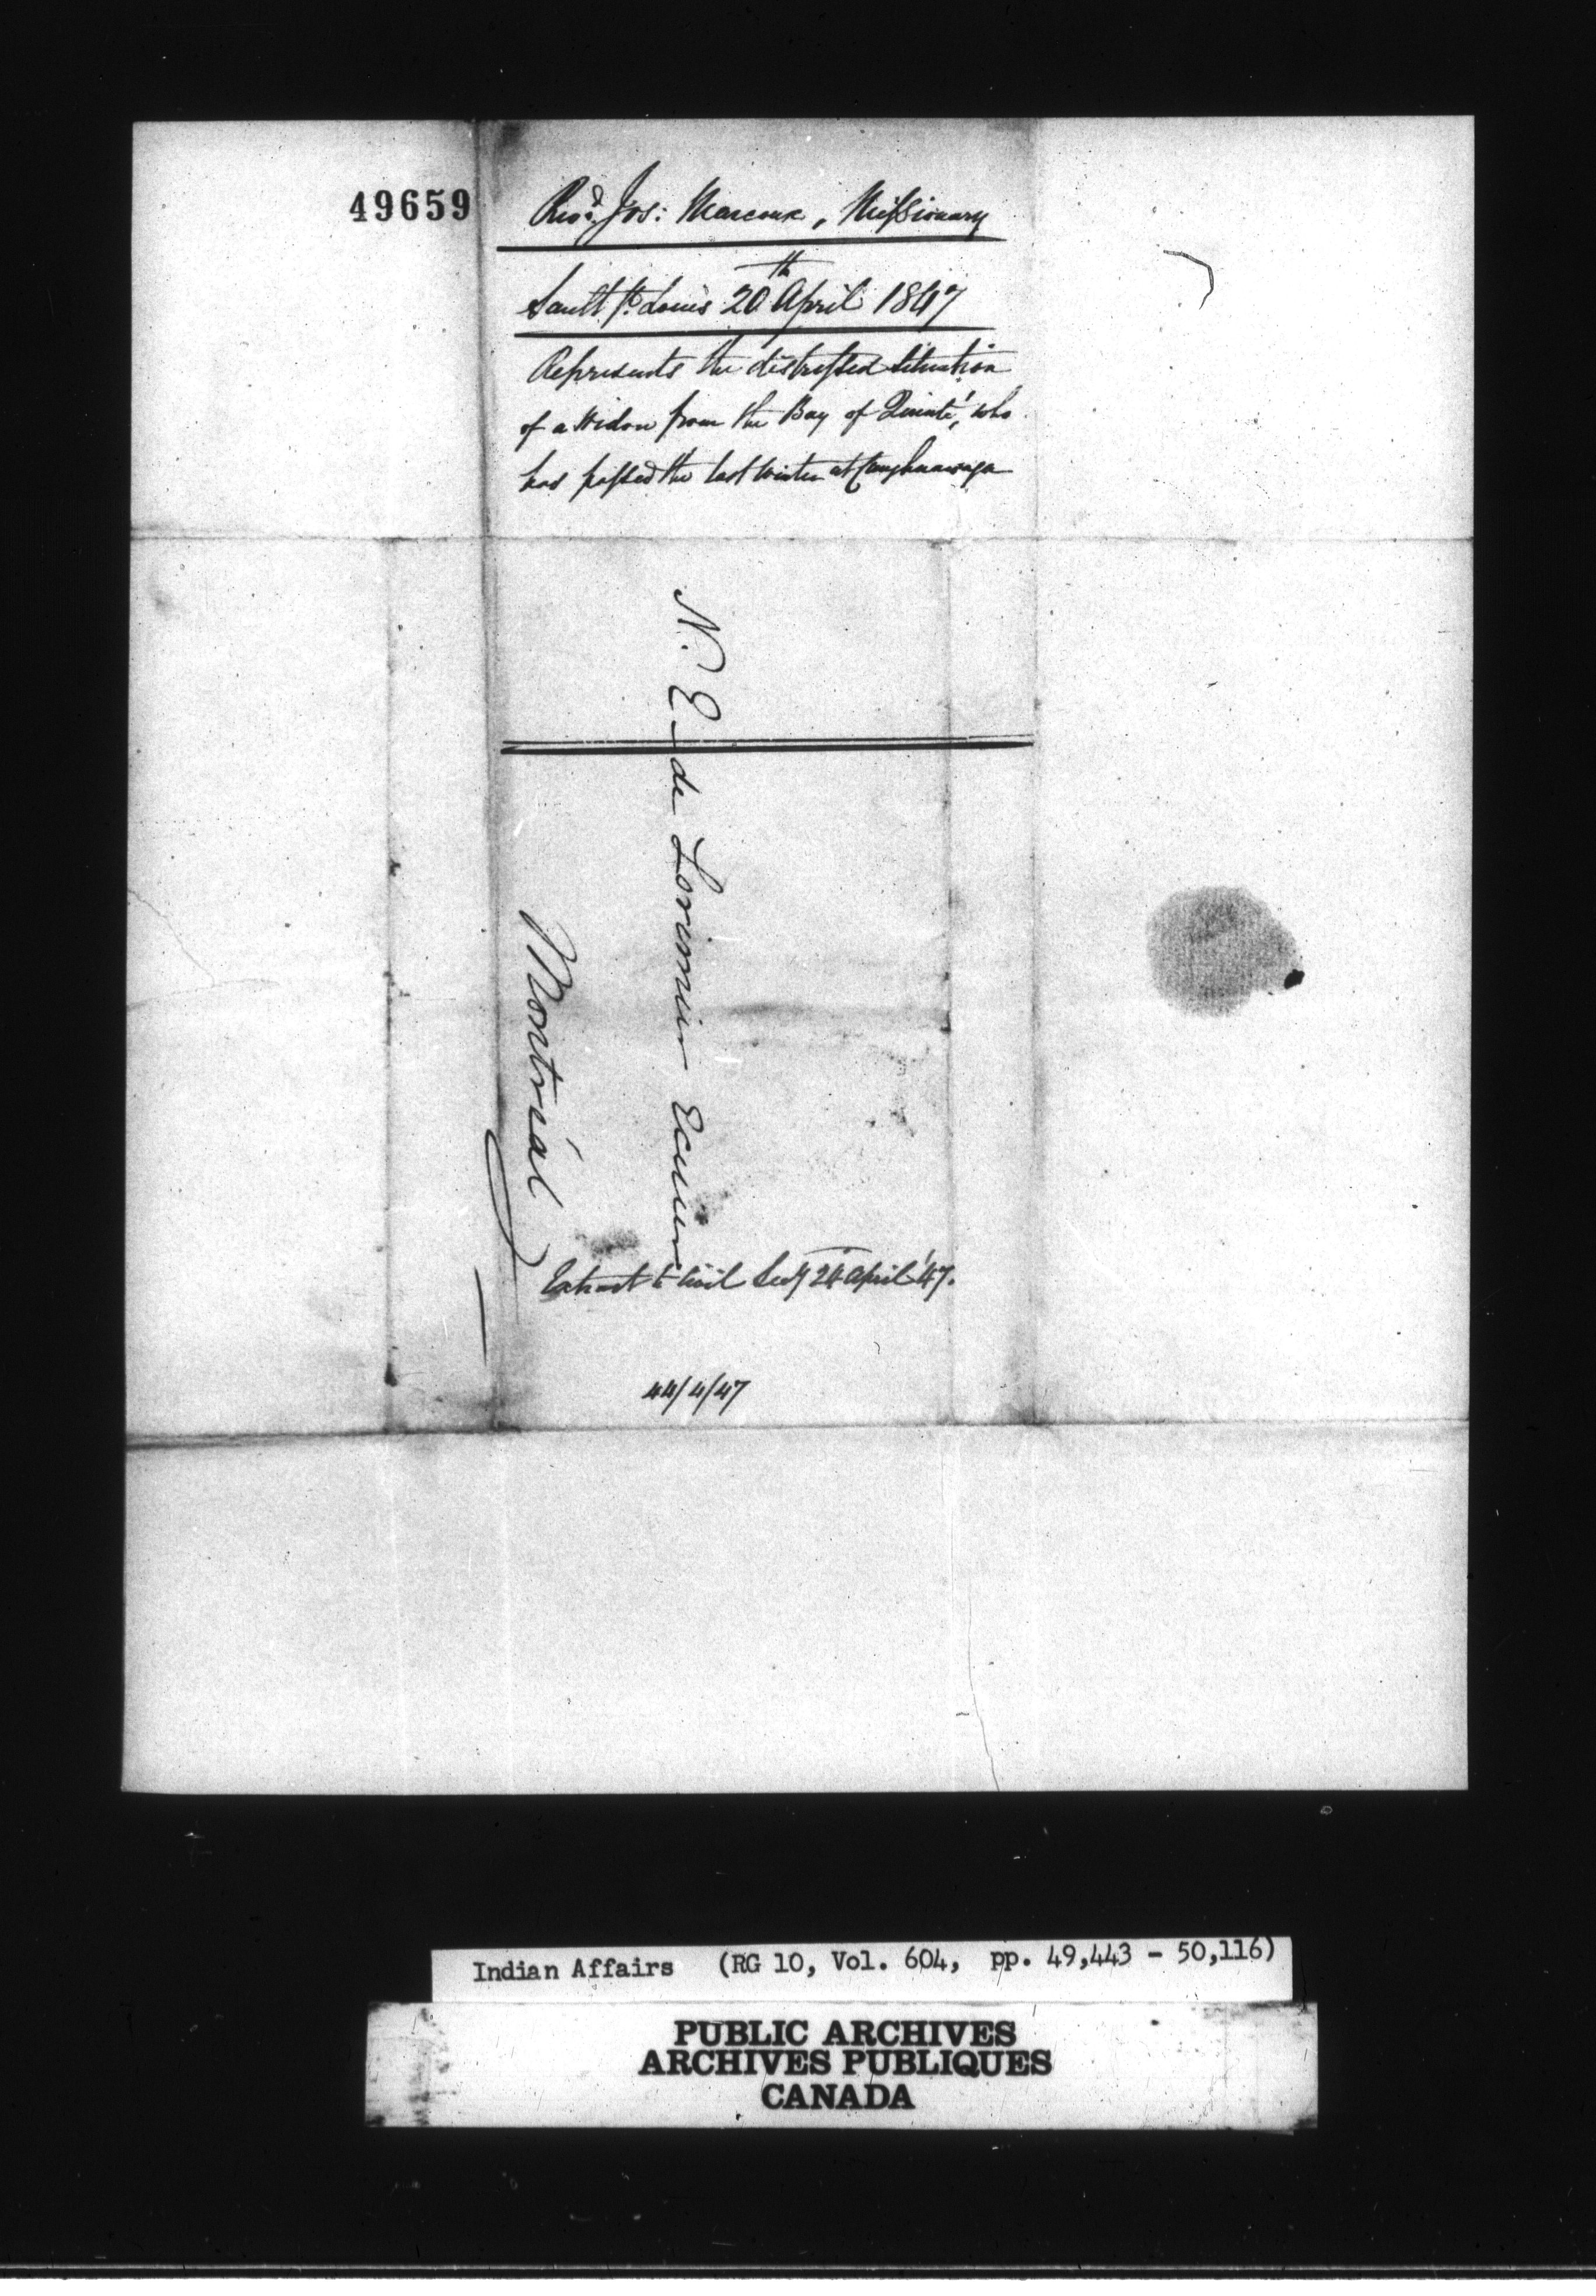 49659
Revd. Jos: Marcoux, Missionary
Sault St. Louis 20th April 1847
Represents the distressed situation
of a Widow from the Bay of Quinté, who
has passed the last Winter at Caughnawaga
N. E. de Lorimier Ecuier
Montréal
Extract to Civil Secy 24 April '47.
44/4/47
Indian Affairs (RG 10, Vol. 604, pp. 49,443 - 50,116)
PUBLIC ARCHIVES
ARCHIVES PUBLIQUES
CANADA